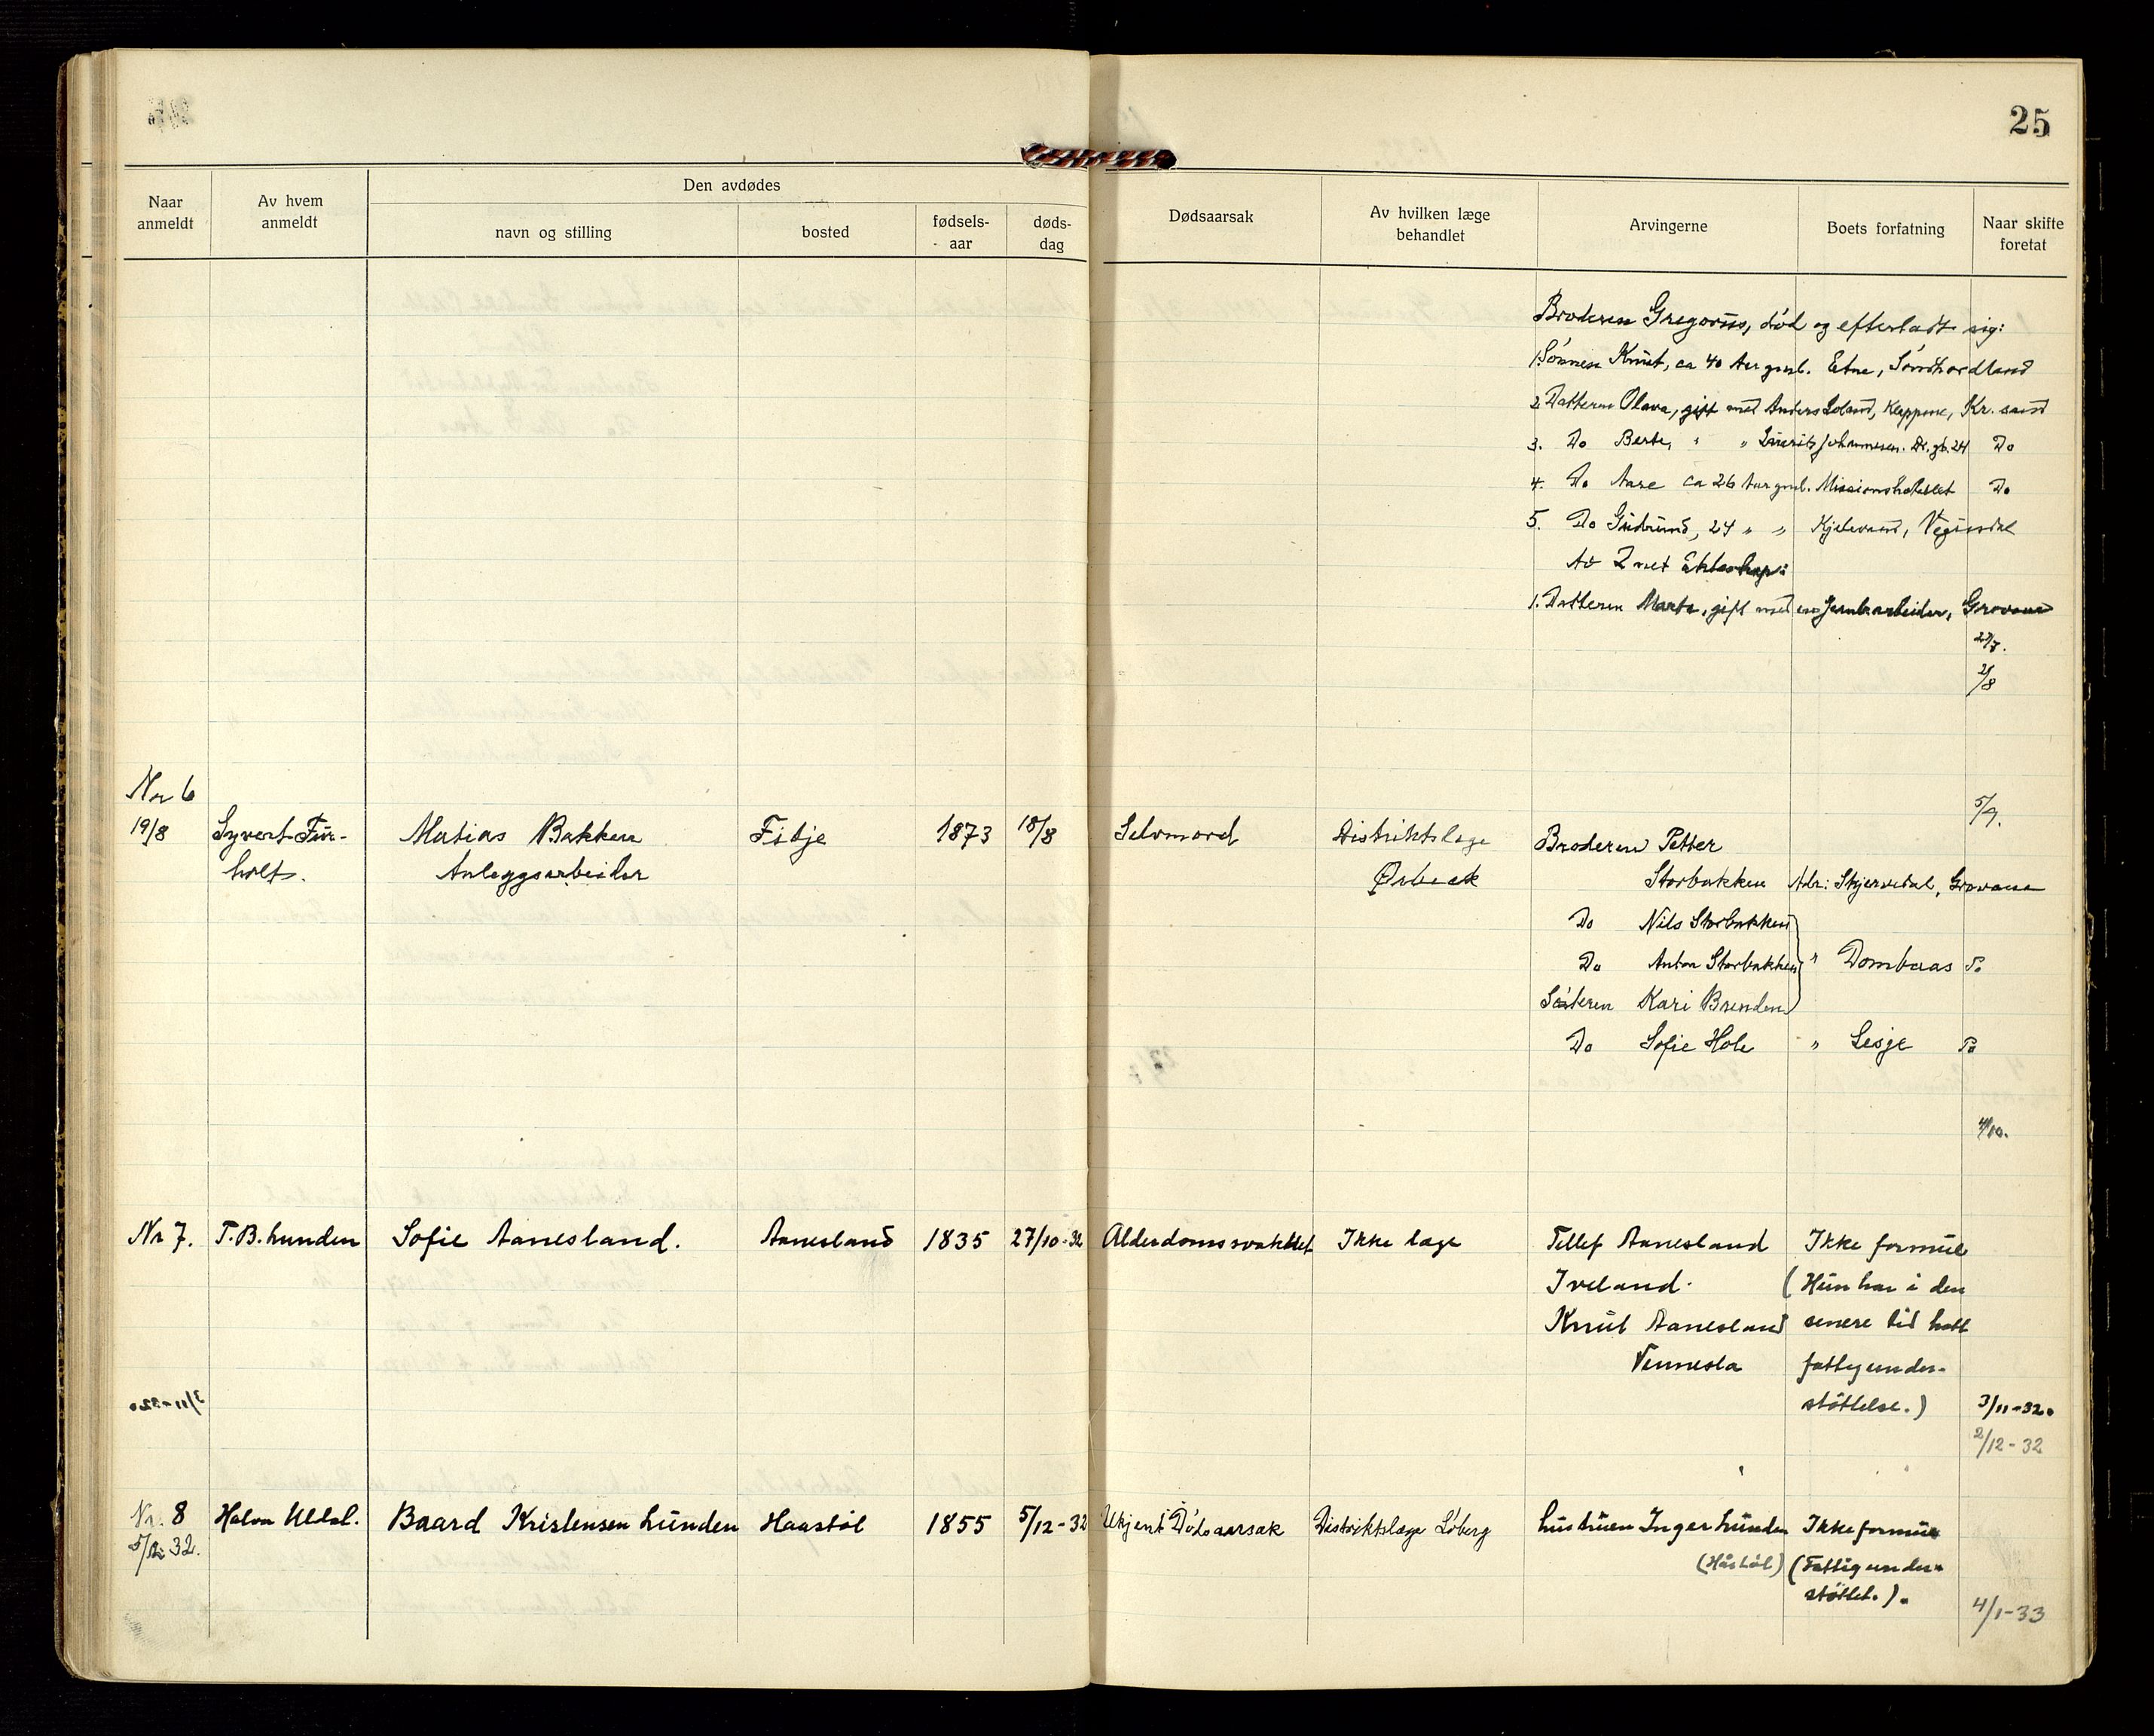 25
Naar anmeldt
Av hvem anmeldt
Den avdødes
navn og stilling
bosted
fødsels-aar
døds-dag
Dødsaarsak
Av hvilken læge behandlet
Arvingerne
Boets forfatning
Naar skifte foretat
Broderen Gregorius, død og efterladt sig:
1. Sønnen Knut, ca 40 Aar gml. Etne, Søndhordland
2 Datteren Olava, gift med Anders Loland, Kleppene, Kr. sand
3. Do Berte, " " Lauritz Johannesen. Dr. gt. 24 Do
4. Do Aase ca 26 Aar gml. Missionshotellet Do
5. Do Gudrund, 24 " " Kjelevand, Vegusdal
Av 2net Ekteskap:
1. Datteren Marta, gift med en Jernbarbeider, Grovane
27/7.
2/8
5/9.
Nr 6
19/8 Syvert Fur- Matias Bakken Fidje 1873 18/8 Selvmord Distriktslæge Broderen Petter
holt. Anleggsarbeider Ørbeck Storbakken Adr: Skjervedal, Grovane
Do Nils Storbakken
Do Anton Storbakken " Dombaas Do
Søsteren Kari Brenden
Do Sofie Hole " Lesje Do
4/10.
Nr 7. T. B. Lunden Sofie Aanesland. Aanesland 1835 27/10-32 Alderdomssvakhet Ikke læge Tellef Aanesland Ikke formue
Iveland. (Hun har i den
Knut Aanesland senere tid hatt
Vennesla fattigunder-
støttelse.) 3/11-32.
2/12-32
Nr. 8 Halvor Uldal. Baard Kristensen Lunden Haastøl 1855 5/12-32 Ukjent Dødsaarsak Distriktslæge Løberg hustruen Inger Lunden Ikke formue
5/12 32. (Håstøl) (Fattigunder-
støttet.).
4/1-33